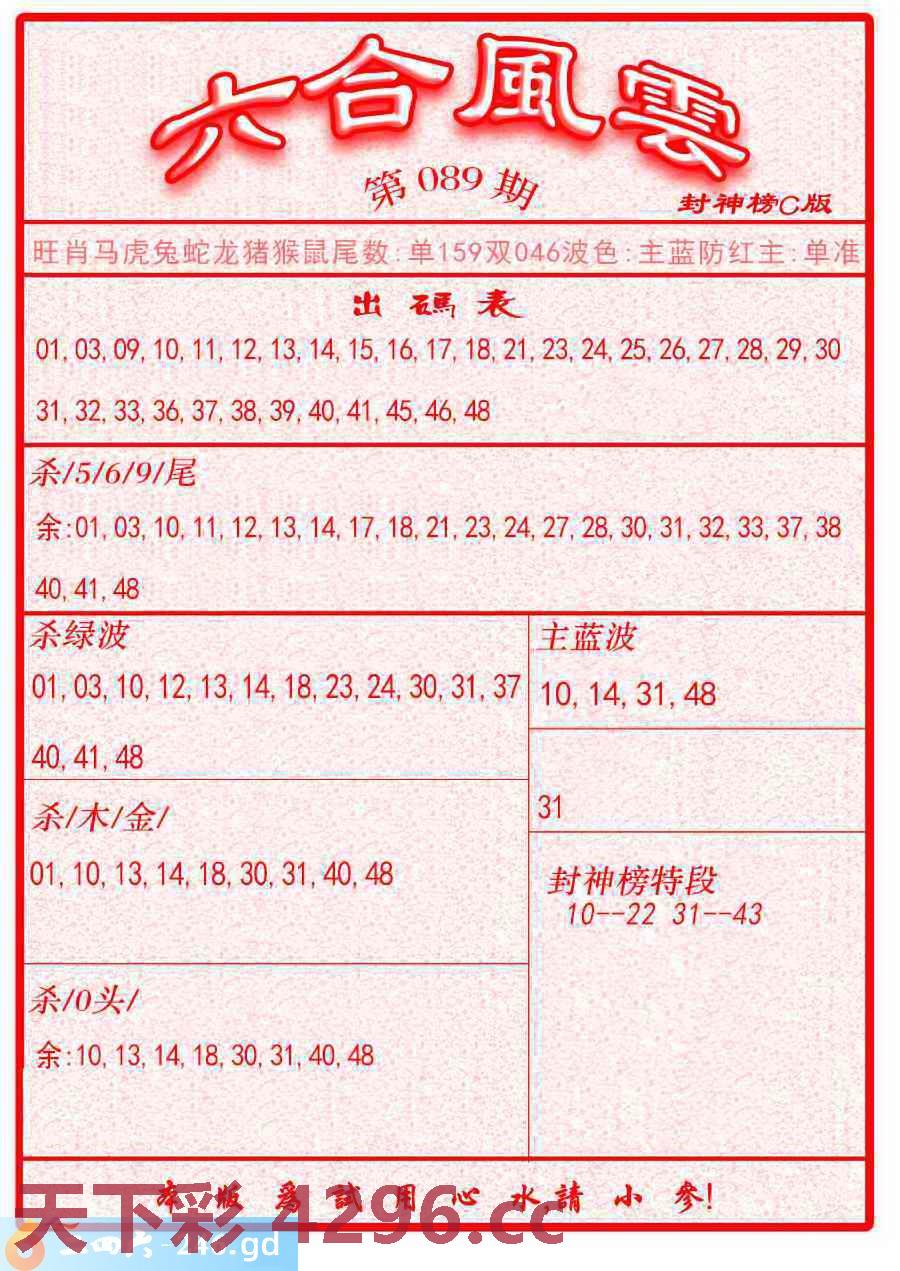 六合風雲
第089期
封神榜C版
旺肖马虎兔蛇龙猪猴鼠尾数:单159双046波色:主蓝防红主:单准
出碼表
01,03,09,10,11,12,13,14,15,16,17,18,21,23,24,25,26,27,28,29,30
31,32,33,36,37,38,39,40,41,45,46,48
杀/5/6/9/尾
余:01,03,10,11,12,13,14,17,18,21,23,24,27,28,30,31,32,33,37,38
40,41,48
杀绿波
01,03,10,12,13,14,18,23,24,30,31,37
40,41,48
主蓝波
10,14,31,48
31
杀/木/金/
01,10,13,14,18,30,31,40,48
封神榜特段
10--22 31--43
杀/0头/
余:10,13,14,18,30,31,40,48
本版爲試用心水,請小參!
天下彩 4296.cc